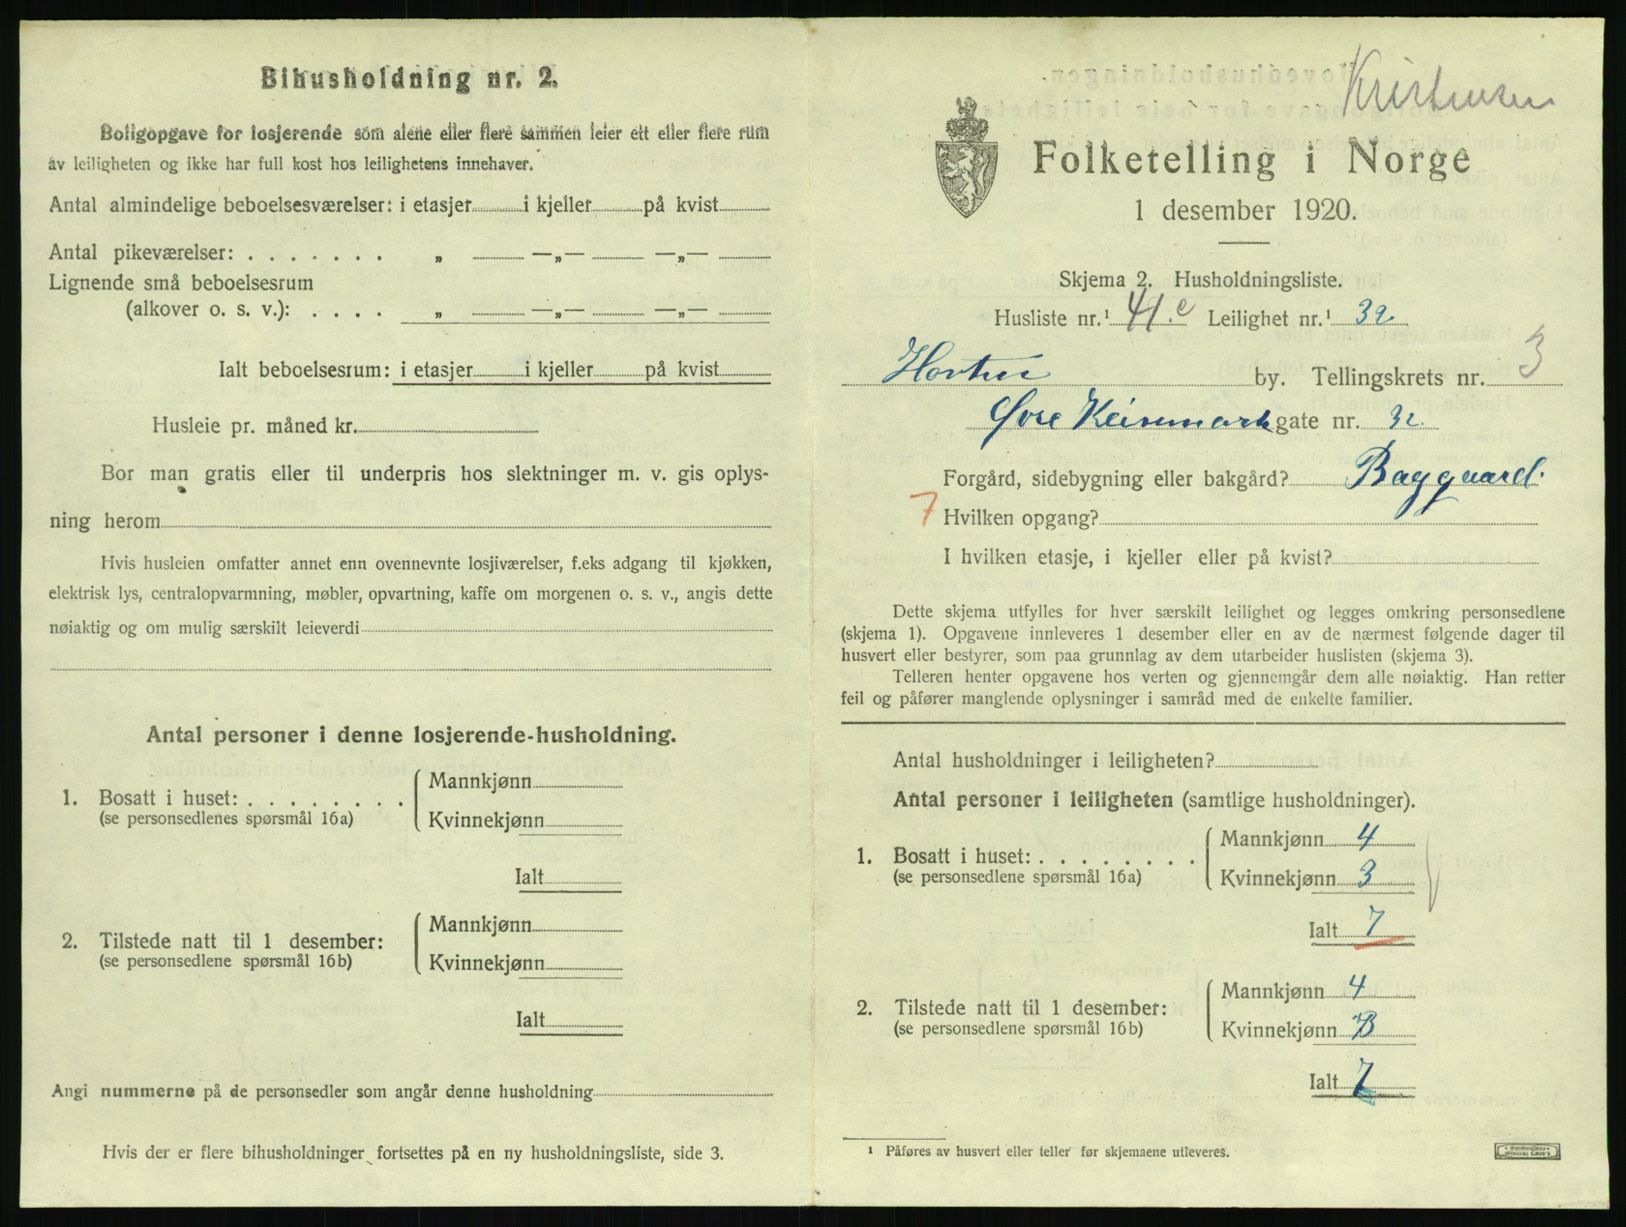 Bihusholdning nr. 2.
Boligopgave for losjerende som alene eller flere sammen leier ett eller flere rum
av leiligheten og ikke har full kost hos leilighetens innehaver.
Antal almindelige beboelsesværelser: i etasjer i kjeller på kvist
Antal pikeværelser: . . . . . . . „ —„— —„—
Lignende små beboelsesrum
(alkover o. s. v.): . . . . „ —„— —„—
Ialt beboelsesrum: i etasjer i kjeller på kvist
Husleie pr. måned kr.
Bor man gratis eller til underpris hos slektninger m. v. gis oplys-
ning herom
Hvis husleien omfatter annet enn ovennevnte losjiværelser, f.eks adgang til kjøkken,
elektrisk lys, centralopvarmning, møbler, opvartning, kaffe om morgenen o. s. v., angis dette
nøiaktig og om mulig særskilt leieverdi
Antal personer i denne losjerende-husholdning.
1. Bosatt i huset: . . . . . . . .
(se personsedlenes spørsmål 16a)
Mannkjønn
Kvinnekjønn
Ialt
2. Tilstede natt til 1 desember:
(se personsedlene spørsmål 16b)
Mannkjønn
Kvinnekjønn
Ialt
Angi nummerne på de personsedler som angår denne husholdning
Hvis der er flere bihusholdninger fortsettes på en ny husholdningsliste, side 3.
Kristensen
Folketelling i Norge
1 desember 1920.
Skjema 2. Husholdningsliste.
Husliste nr.¹ 41.e Leilighet nr.¹ 32
Horten by. Tellingskrets nr. 3
Øvre Keisemark gate nr. 32.
Forgård, sidebygning eller bakgård? Baggaard.
7 Hvilken opgang?
I hvilken etasje, i kjeller eller på kvist?
Dette skjema utfylles for hver særskilt leilighet og legges omkring personsedlene
(skjema 1). Opgavene innleveres 1 desember eller en av de nærmest følgende dager til
husvert eller bestyrer, som paa grunnlag av dem utarbeider huslisten (skjema 3).
Telleren henter opgavene hos verten og gjennemgår dem alle nøiaktig. Han retter
feil og påfører manglende oplysninger i samråd med de enkelte familier.
Antal husholdninger i leiligheten?
Antal personer i leiligheten (samtlige husholdninger).
1. Bosatt i huset: . . . . . . . .
(se personsedlene spørsmål 16a)
Mannkjønn 4
Kvinnekjønn 3
Ialt 7
2. Tilstede natt til 1 desember:
(se personsedlene spørsmål 16b)
Mannkjønn 4
Kvinnekjønn 3
Ialt 7
¹ Påføres av husvert eller teller før skjemaene utleveres.